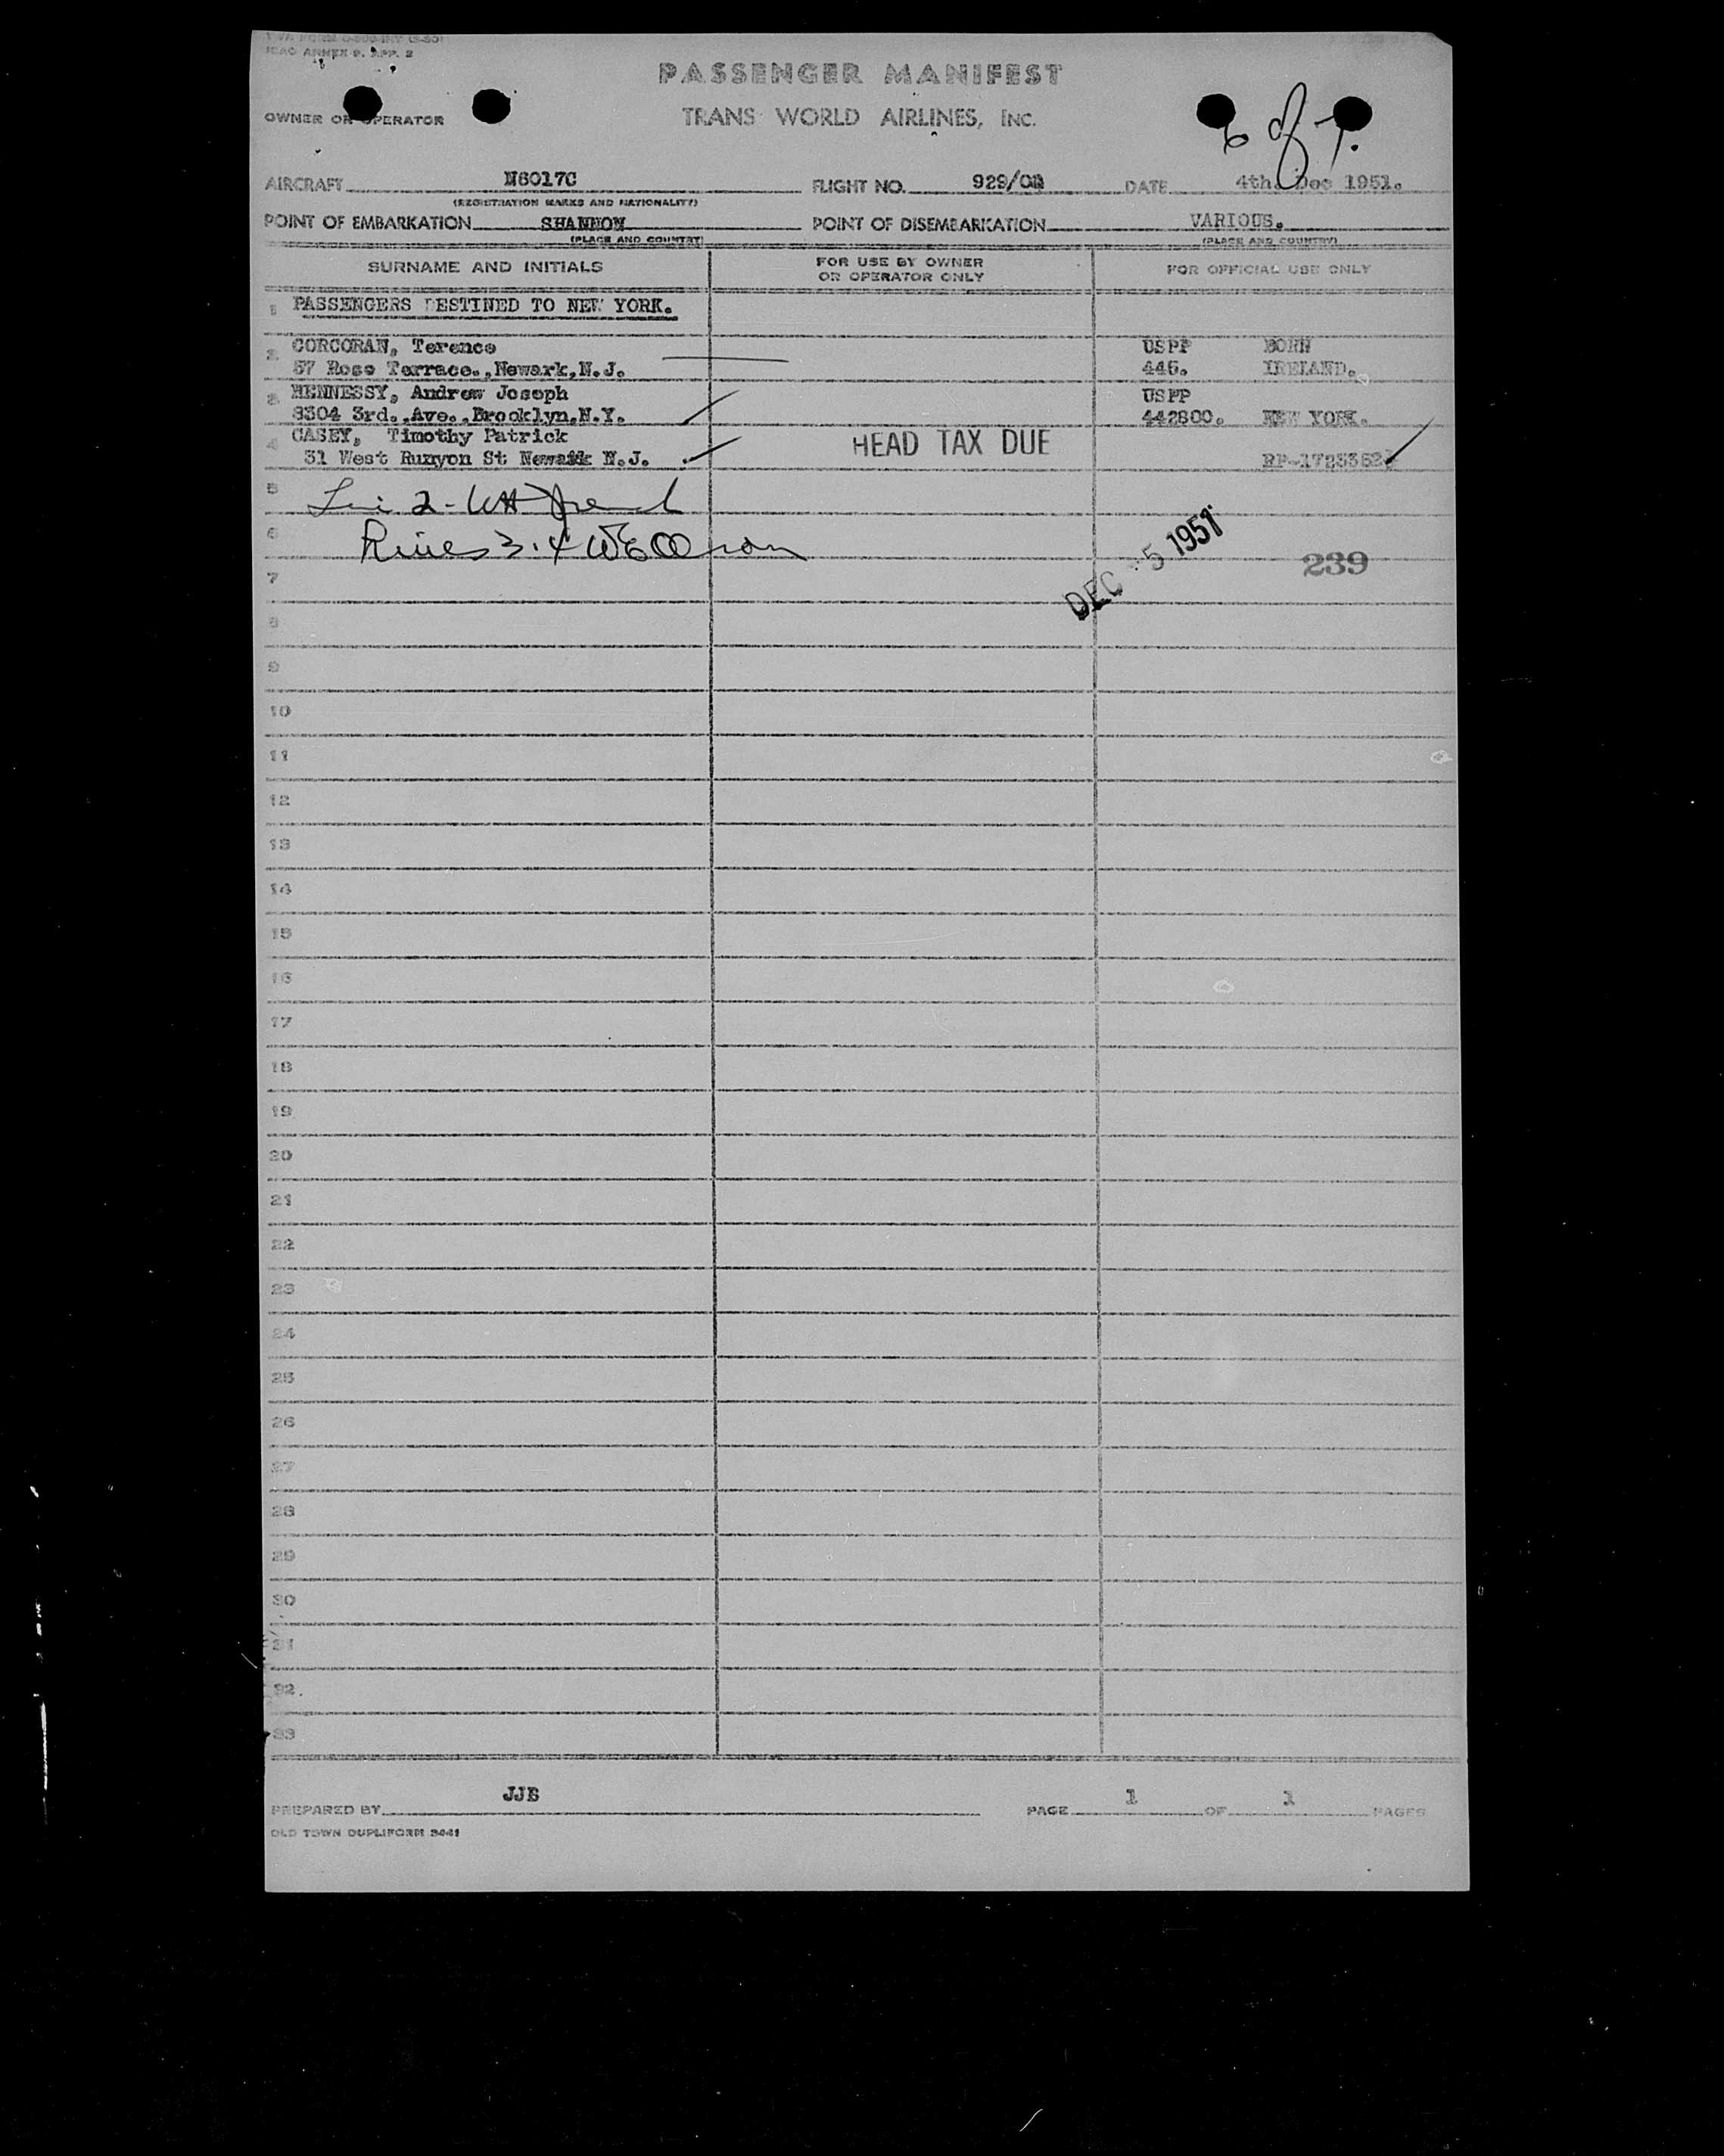 ICAO ANNEX 9, APP. 2
PASSENGER MANIFEST
OWNER OR OPERATOR
TRANS WORLD AIRLINES, INC.
6 of 7.
AIRCRAFT N6017C FLIGHT NO. 929/ DATE 4th. Dec 1951.
(REGISTRATION MARKS AND NATIONALITY)
POINT OF EMBARKATION SHANNON POINT OF DISEMBARKATION VARIOUS.
(PLACE AND COUNTRY) (PLACE AND COUNTRY)
SURNAME AND INITIALS FOR USE BY OWNER OR OPERATOR ONLY FOR OFFICIAL USE ONLY
1 PASSENGERS DESTINED TO NEW YORK.
2 CORCORAN, Terence USPP BORN
57 Rose Terrace.,Newark,N.J. 446. IRELAND.
3 HENNESSY, Andrew Joseph USPP
8304 3rd.,Ave.,Brooklyn,N.Y. 442800. NEW YORK.
4 CASEY, Timothy Patrick HEAD TAX DUE
31 West Runyon St Newark N.J. RP-1725352
5 2 -
6 3.4
DEC - 5 1951
239
7
8
9
10
11
12
13
14
15
16
17
18
19
20
21
22
23
24
25
26
27
28
29
30
31
32
33
PREPARED BY JJB PAGE 1 OF 1 PAGES
OLD TOWN DUPLIFORM 9441